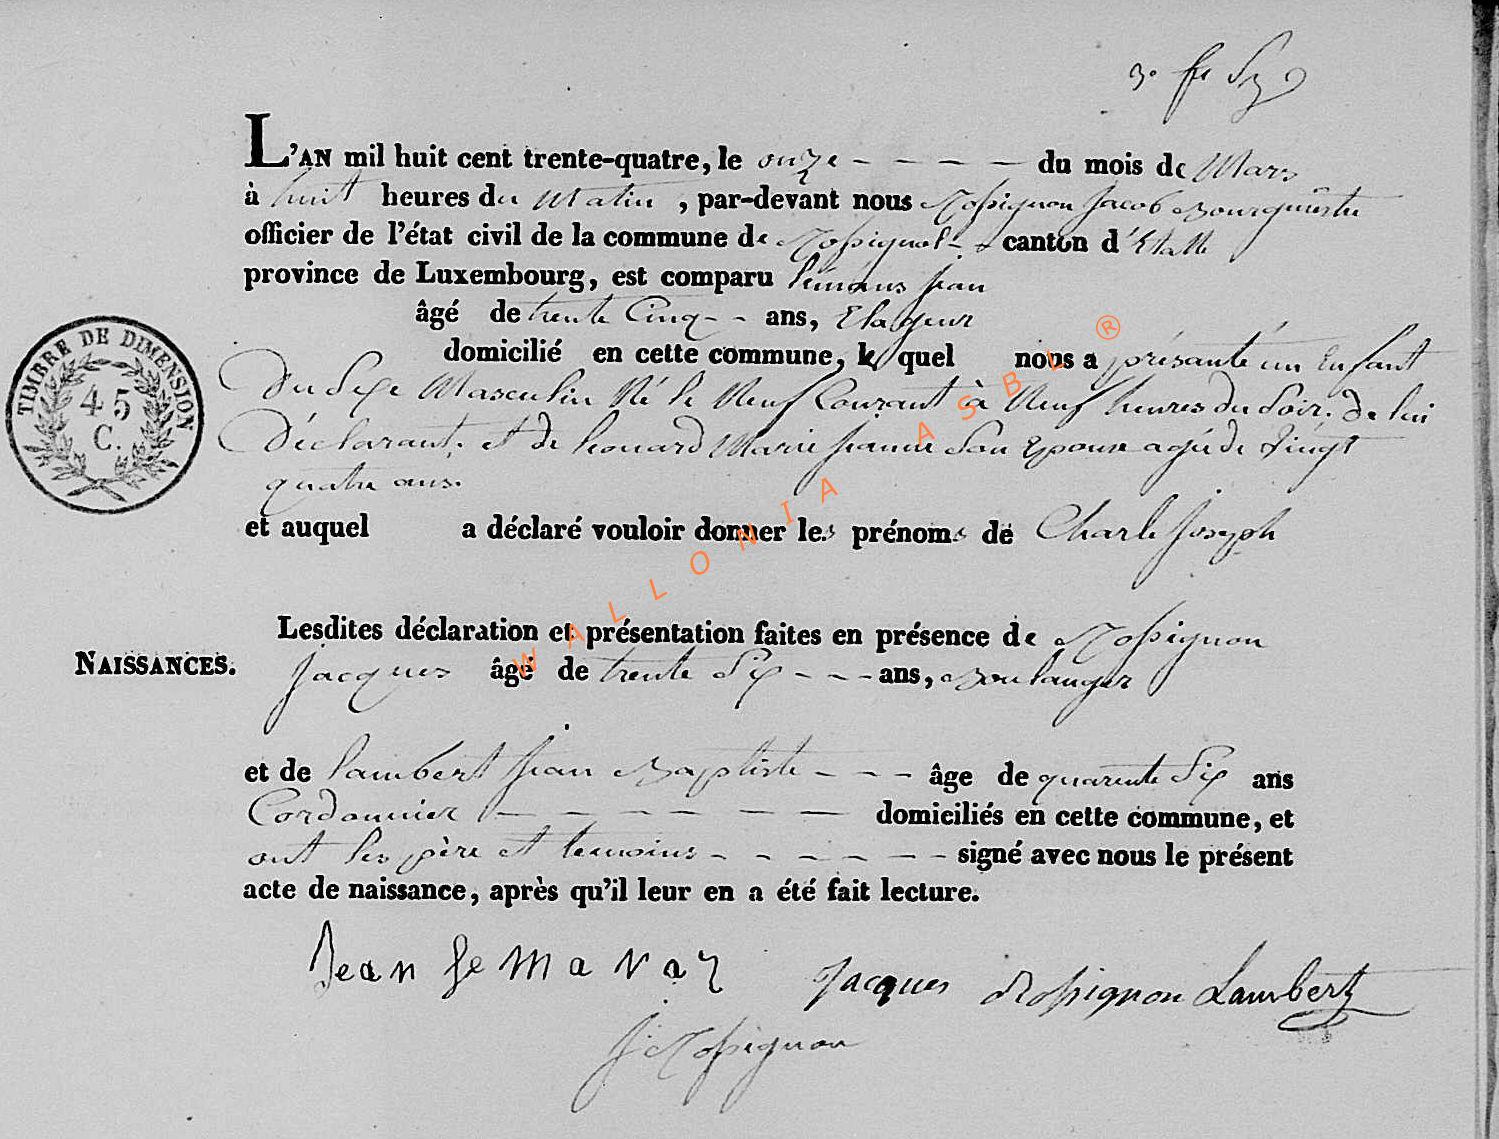 L'AN mil huit cent trente-quatre, le onze - - - - du mois de Mars
à huit heures du Matin, par-devant nous Rossignon Jacob Bourguèstre
officier de l'état civil de la commune de Rossignol - canton d'Etalle
province de Luxembourg, est comparu Jean
âgé de trente Cinq - - ans, Elageur
domicilié en cette commune, lequel nous a présanté un Enfant
Du Sexe Masculin Né le Neuf Courant à Neuf heures du Soir. de lui
Déclarant, et de Louard Marie Jeanne Son Epouse agée de Vingt
quatre ans.
et auquel a déclaré vouloir donner les prénoms de Charle Joseph
Lesdites déclaration et présentation faites en présence de Rossignon
NAISSANCES.
Jacques âgé de trente Six - - - ans, Boulanger
et de Lambert Jean Baptiste - - - âge de quarente Six ans
Cordonnier - - - - - - - domiciliés en cette commune, et
ont les père et temoins - - - - - - signé avec nous le présent
acte de naissance, après qu'il leur en a été fait lecture.
Jean
Jacques Rossignon Lambert
J Rossignon
TIMBRE DE DIMENSION
45
C.
WALLONIA ASBL ®